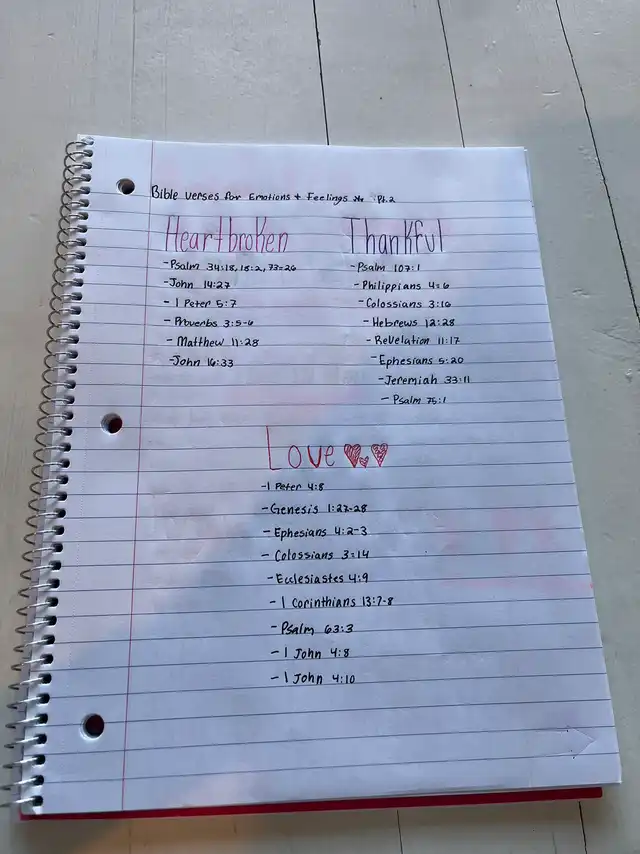 Bible verses for Emotions + Feelings Pt.2
Heartbroken
-Psalm 34:18, 18:2, 73=26
-John 14:27
- 1 Peter 5:7
- Proverbs 3:5-6
- Matthew 11:28
-John 16:33
Thankful
-Psalm 107:1
- Philippians 4=6
-Colossians 3:16
- Hebrews 12:28
- Revelation 11:17
-Ephesians 5:20
-Jeremiah 33:11
- Psalm 75:1
Love
-1 Peter 4:8
-Genesis 1:27-28
- Ephesians 4:2-3
- Colossians 3=14
-Ecclesiastes 4:9
- 1 Corinthians 13:7-8
-Psalm 63:3
- 1 John 4:8
- 1 John 4:10